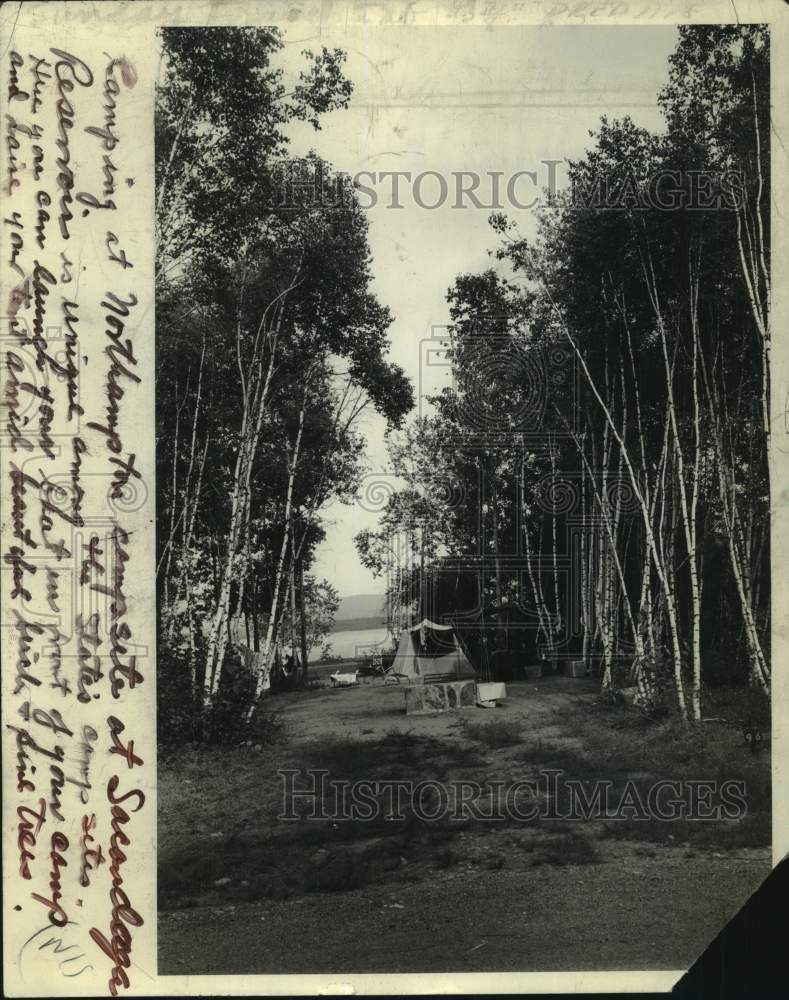 Camping at Northampton campsite at Sacandaga
Reservoir is unique among the State's camp sites.
Here you can launch your boat in front of your camp
and have your tent amid beautiful birch & pine trees
(N/S)
HISTORIC IMAGES
HISTORIC IMAGES
96